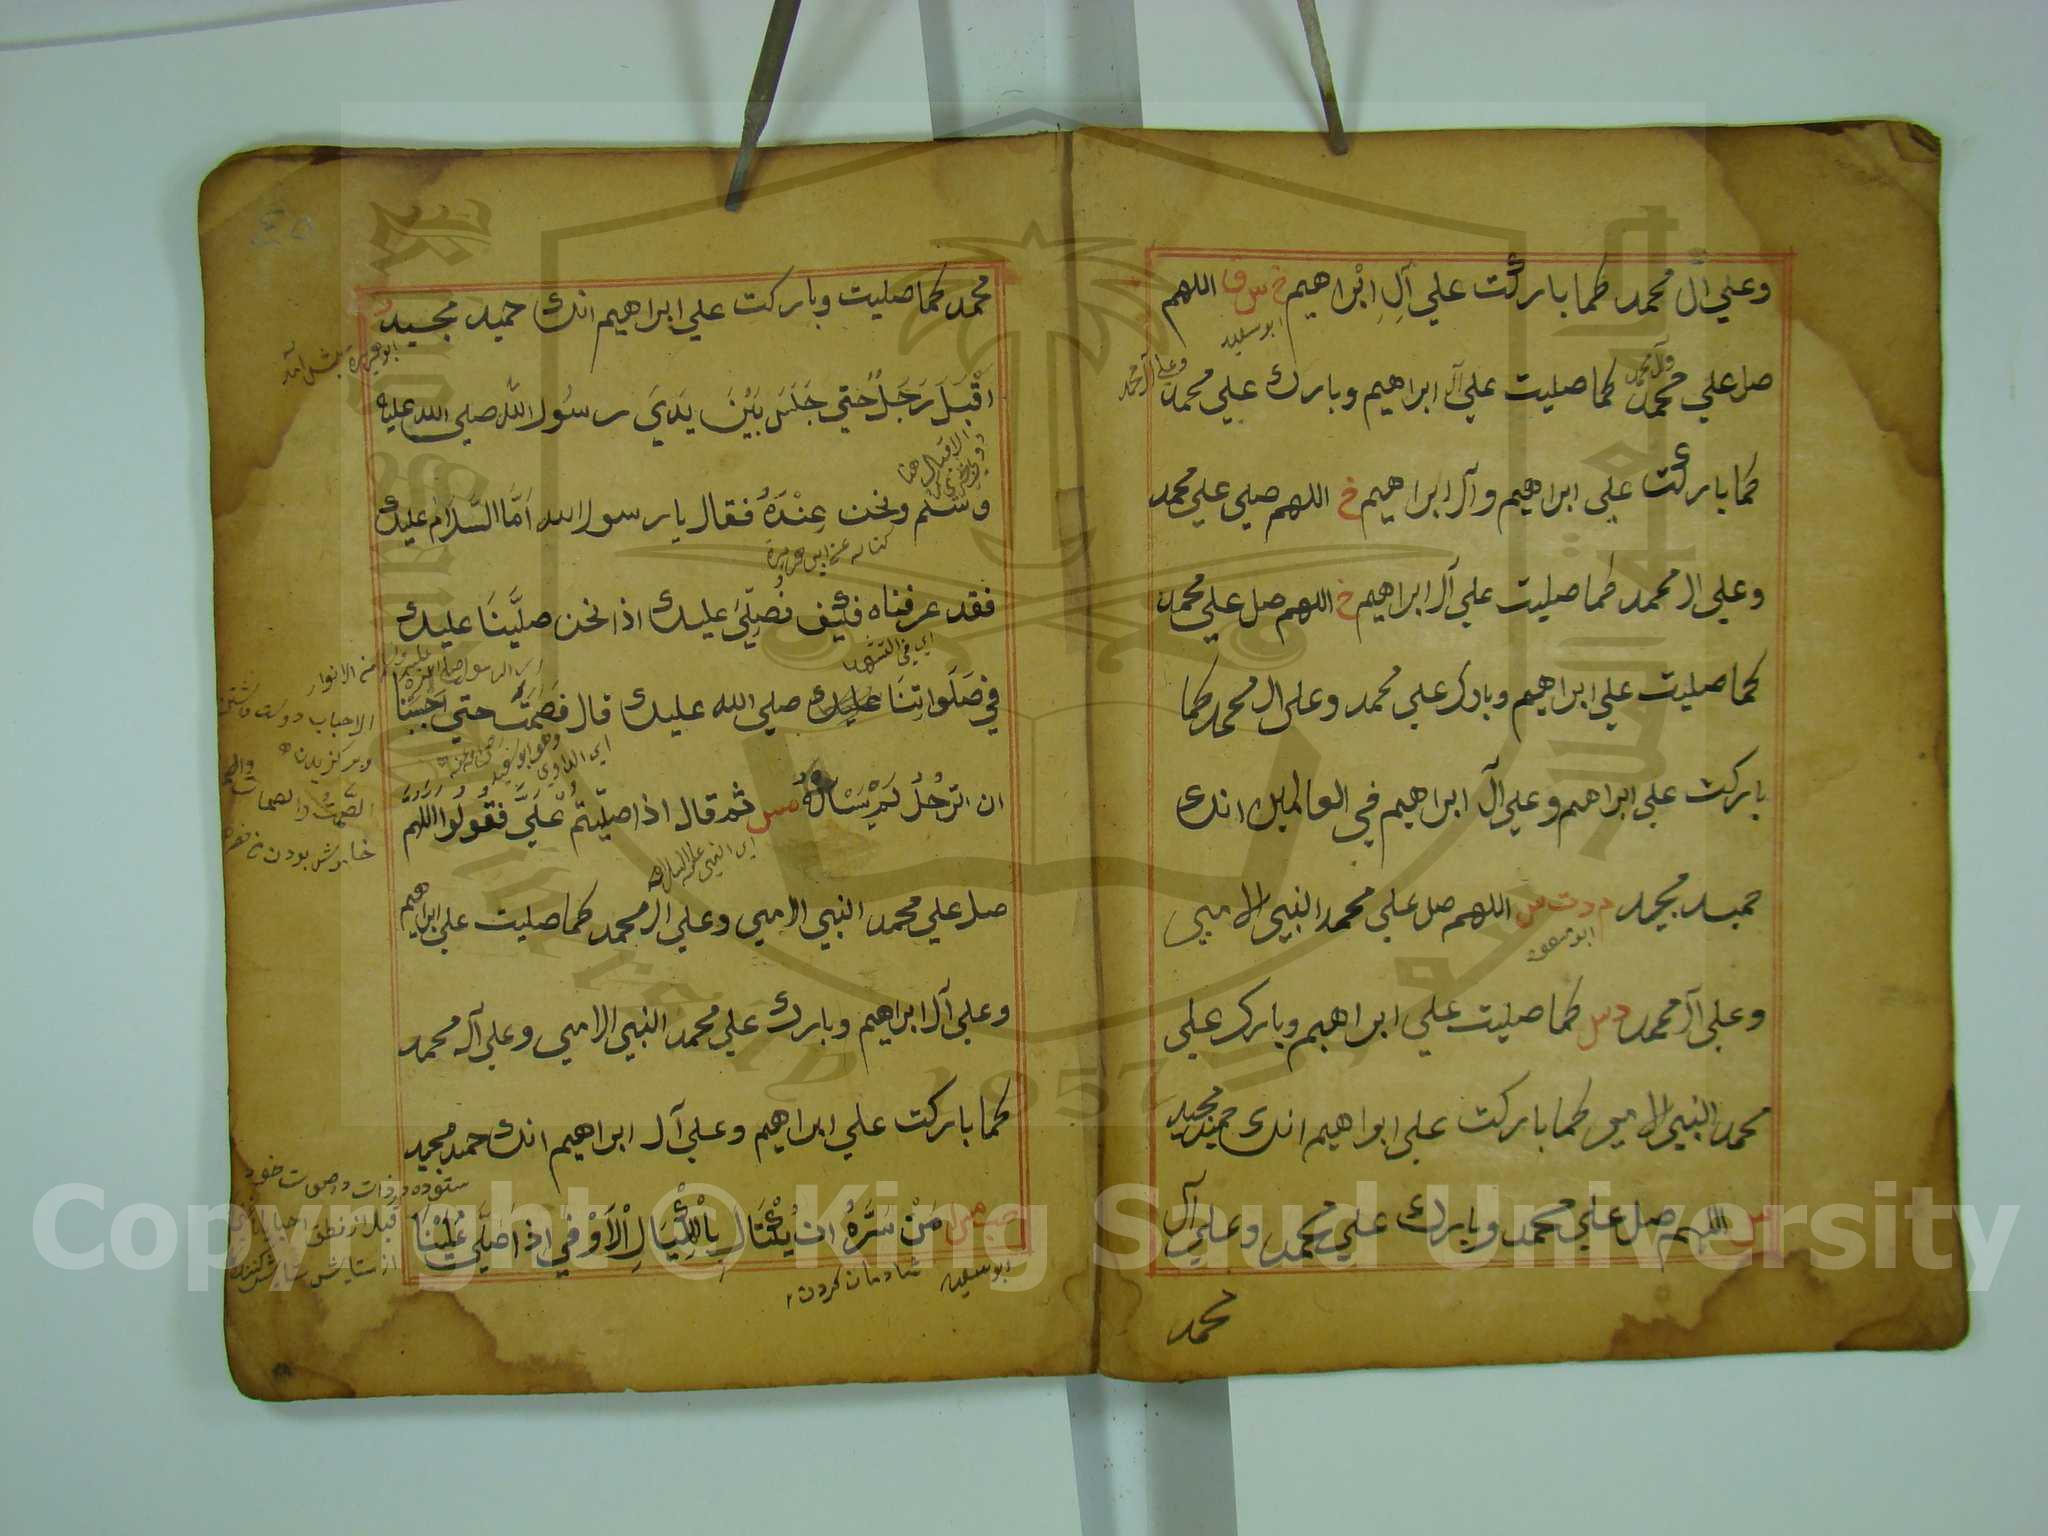 وعلي آل محمد كما باركت علي آلِ اِبْراهيم خ س ق اللهم
ابو سعيد
صل علي محمد كما صليت علي آل ابراهيم وبارك علي محمد
وآل محمد
وعلي آل محمد
كما باركت علي ابراهيم وآل ابراهيم خ اللهم صلي علي محمد
وعلي ال محمد كما صليت علي آل ابراهيم خ اللهم صل علي محمد
كما صليت علي ابراهيم وبارك علي محمد وعلي ال محمد كما
باركت علي ابراهيم وعلي آل ابراهيم في العالمين انك
حميد مجيد م د ت س اللهم صل علي محمد النبي الامي
ابو مسعود
وعلي آل محمد د س كما صليت علي ابراهيم وبارك علي
محمد النبي الامي كما باركت علي ابراهيم انك حميد مجيد
س اللهم صل علي محمد وبارك علي محمد وعلي آل
محمد
٤٥
محمد كما صليت وباركت علي ابراهيم انك حميد مجيد د
ابو هريرة
اَقْبَلَ رَجُلٌ حَتي جَلَسَ بَيْنَ يَدَيْ رسُول اللّٰه صلي الله عليه
الاقبال هنا
وسَلم ونحن عِنْدَهُ فقال يا رسول الله اَمَّا السَّلَام عليك
فقد عرفناه فكَيْف نُصَلِّي عليك اذا نحن صلَّيْنَا عليك
اي في التشهد
في صَلَواتِنَا عليك صلي الله عليك قال فَصَمَتَ حتي اَحْبَبْنَا
اي الراوي
ان الرّجُلَ لَمْ يَسْألهُ مس ثم قال اذا صلّيتُم عَلَيَّ فقولوا اللهم
اي النبي عليه السلام
صل علي محمد النبي الامي وعلي ال محمد كما صليت علي ابراهيم
وعلي آل ابراهيم وبارك علي محمد النبي الامي وعلي آل محمد
كما باركت علي ابراهيم وعلي آل ابراهيم انك حميد مجيد
حب مس مَنْ سَرَّهُ ان يُكْتَالَ بِالْمِكْيَالِ الْاَوْفي اذا صَلّي عَلَيْنَا
شادمان كردن
الاحباب دوست داشتن
خاموش بودن
Copyright © King Saud University
King Saud University 1957